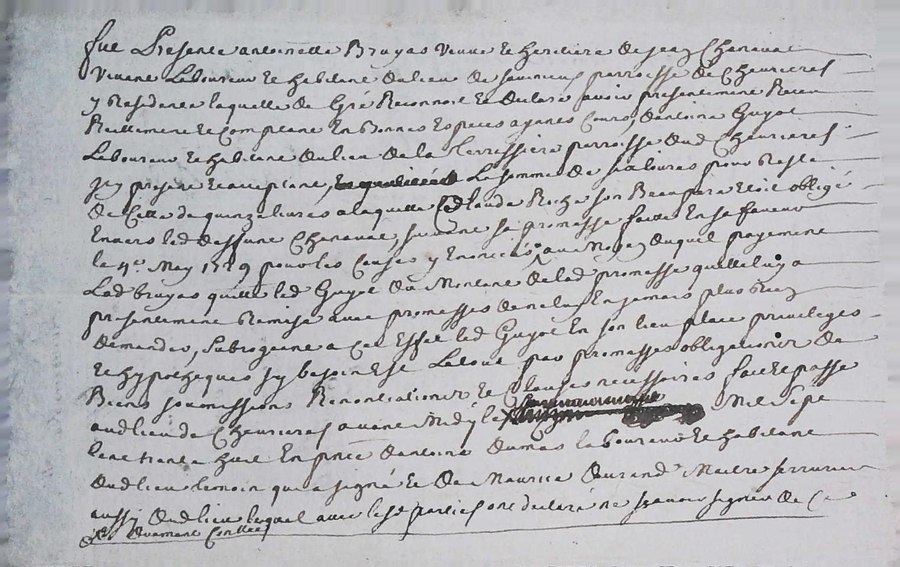 fut Presente antoinette Bruyas veuve et heritiere de jean Chanavat
vivant Laboureur et habitant du lieu de parroisse de Chevrieres
y Residante laquelle de Gré Reconnoit et declare avoir presentement Receu
Reellement et Comptant En Bonnes Especes ayants Cours, d'antoine Guyot
Laboureur et habitant du lieu de la Terrassiere parroisse dud Chevrieres
jcy present et acceptant, La somme de livres pour Reste
de Celle de quinze livres a laquelle Claude son Beau pere Etoit obligé
Envers led deffunt Chanavat, suivant sa promesse faitte En sa faveur
le 4e. May 1729 pour les Causes y Enoncées, au moyen duquel payement
Lad bruyas quitte led Guyot du Montant de lad promesse quelle luy a
presentement Remise avec promesses de ne luy En jamais plus Rien
demander, subrogeant a Cet Effet led Guyot En son lieu place privileges
et hypotheques sy besoin Est Le tout par promesses obligations de
Biens soumissions Renonciations et Clauses necessaires fait et passé
aud lieu de Chevrieres avant Midy le Mil sept
Cent trante huit En pnce d'antoine dumas laboureur et habitant
dud lieu temoin qui a signé et de Maurice durand Maitre serrurier
aussy dud lieu lequel avec lesd parties ont declaré ne scavoir signer de Ce
duement